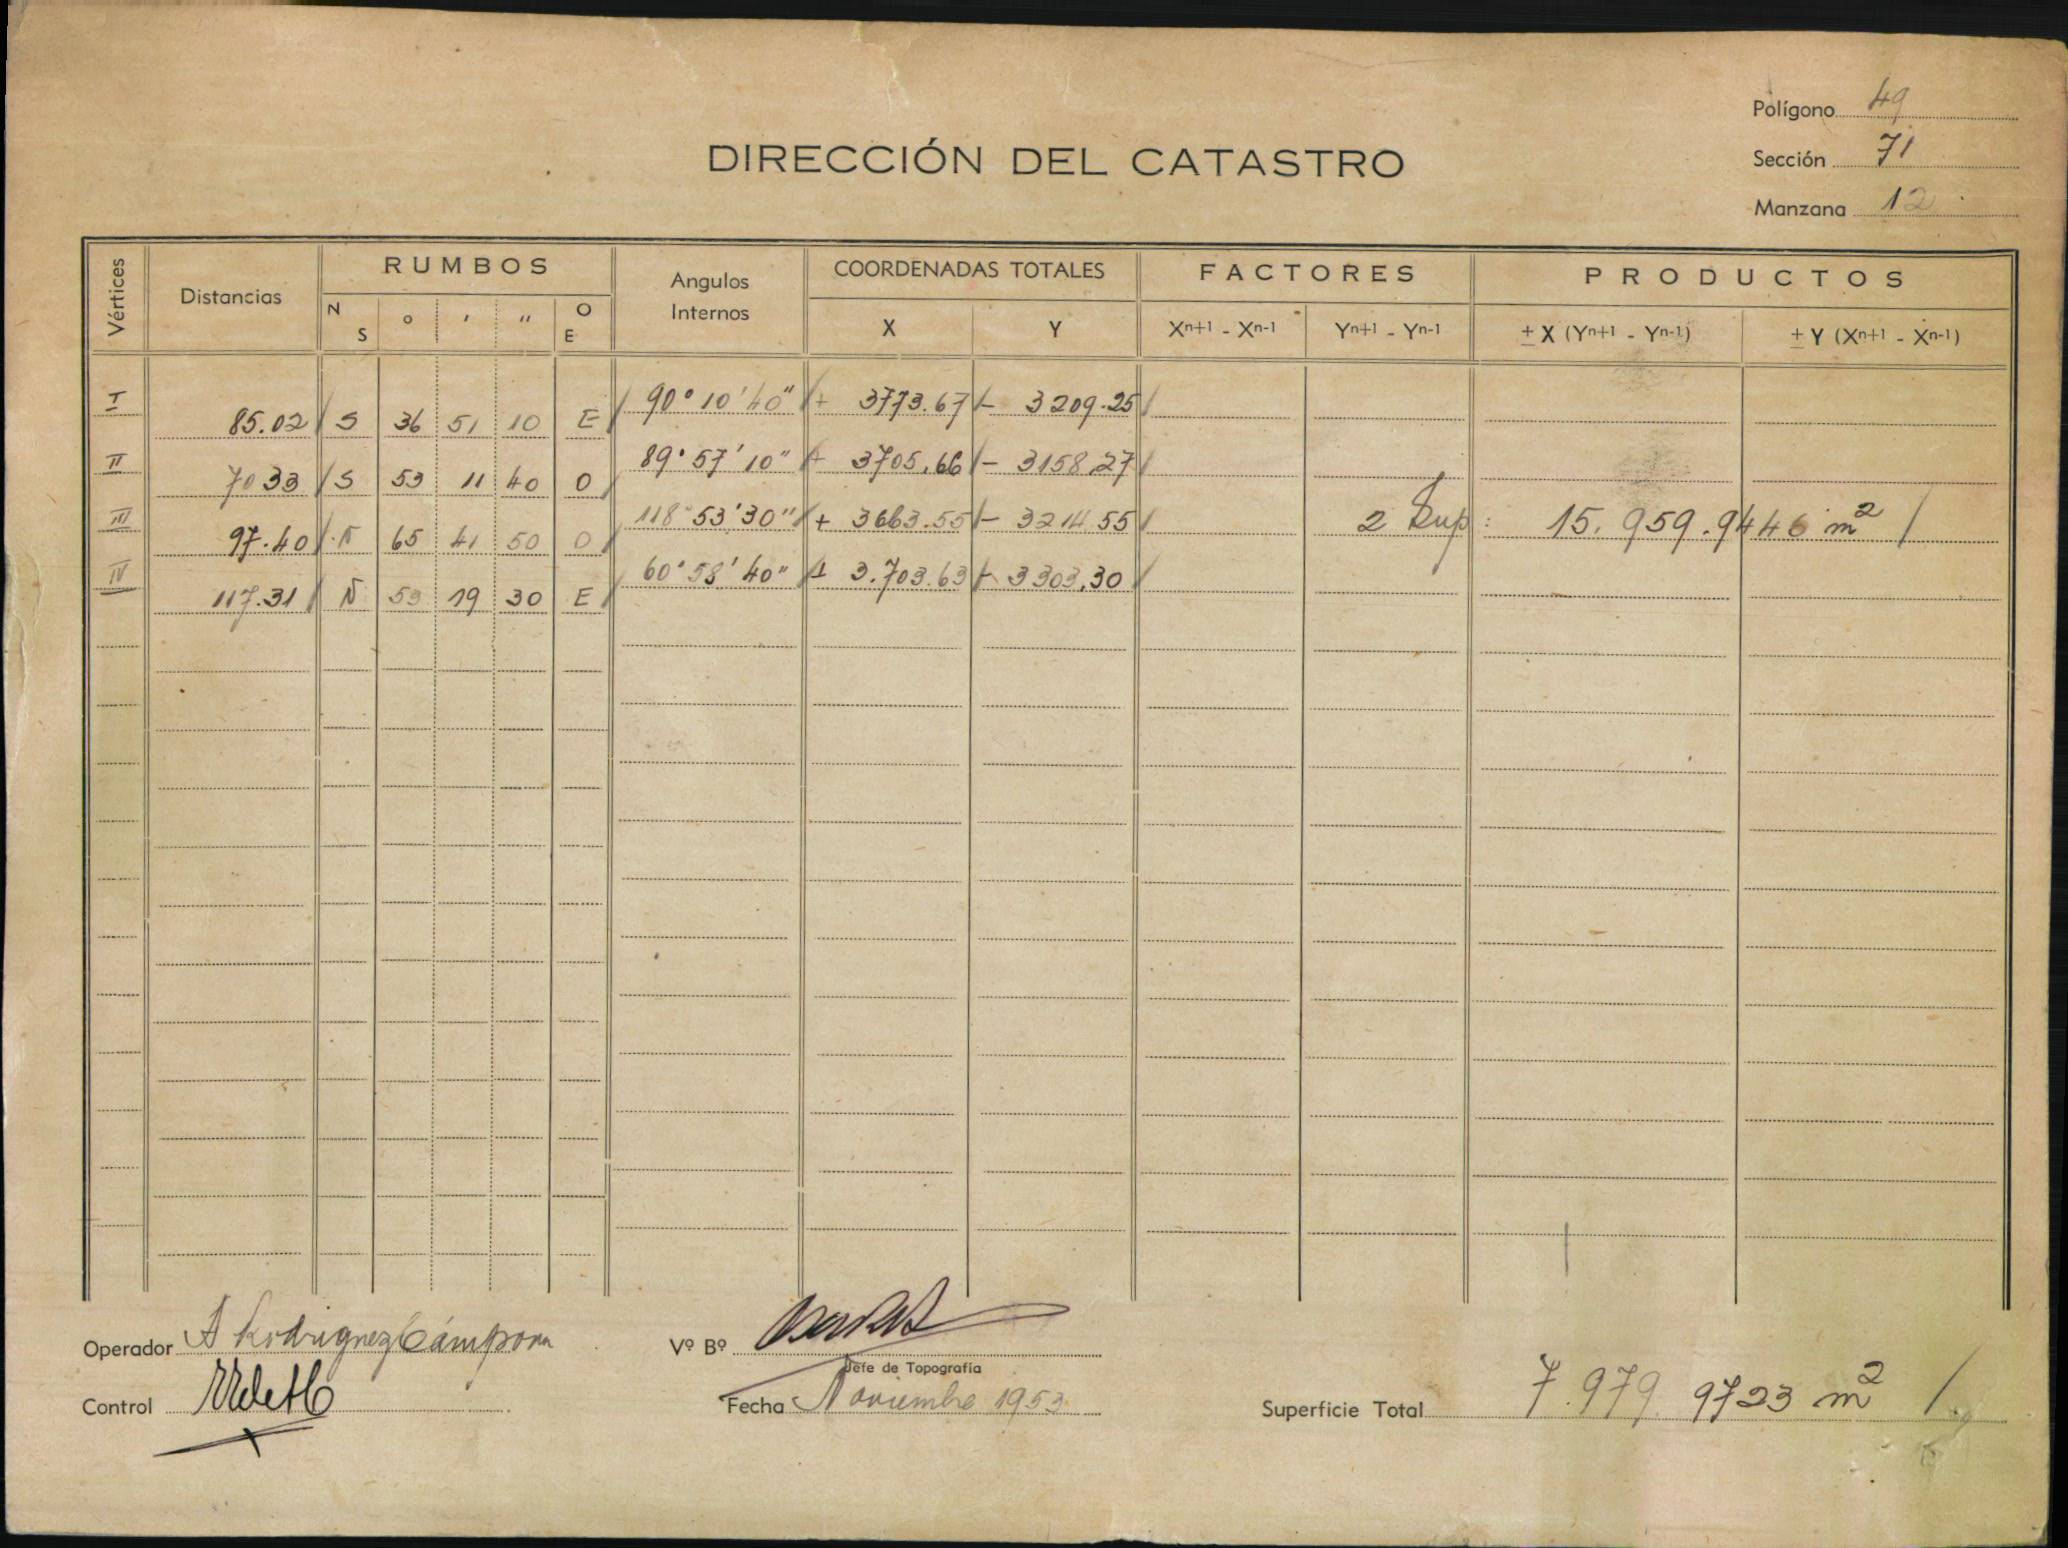 Polígono 49
DIRECCIÓN DEL CATASTRO
Sección 71
Manzana 12
Vértices Distancias RUMBOS N S ° ' " O E Angulos Internos COORDENADAS TOTALES X Y FACTORES Xn+1 - Xn-1 Yn+1 - Yn-1 PRODUCTOS ± X (Yn+1 - Yn-1) ± Y (Xn+1 - Xn-1)
I 85.02 S 36 51 10 E 90° 10' 40" + 3773.67 - 3209.25
II 70 33 S 53 11 40 O 89° 57' 10" + 3705.66 - 3158.27
III 97.40 N 65 41 50 O 118° 53' 30" + 3663.55 - 3214.55 2 Sup: 15.959.9446 m²
IV 117.31 N 53 19 30 E 60° 58' 40" + 3.703.63 - 3303,30
Operador A Rodriguez Cámpora Vº Bº
Jefe de Topografía
Control Fecha Noviembre 1953 Superficie Total 7.979.9723 m²